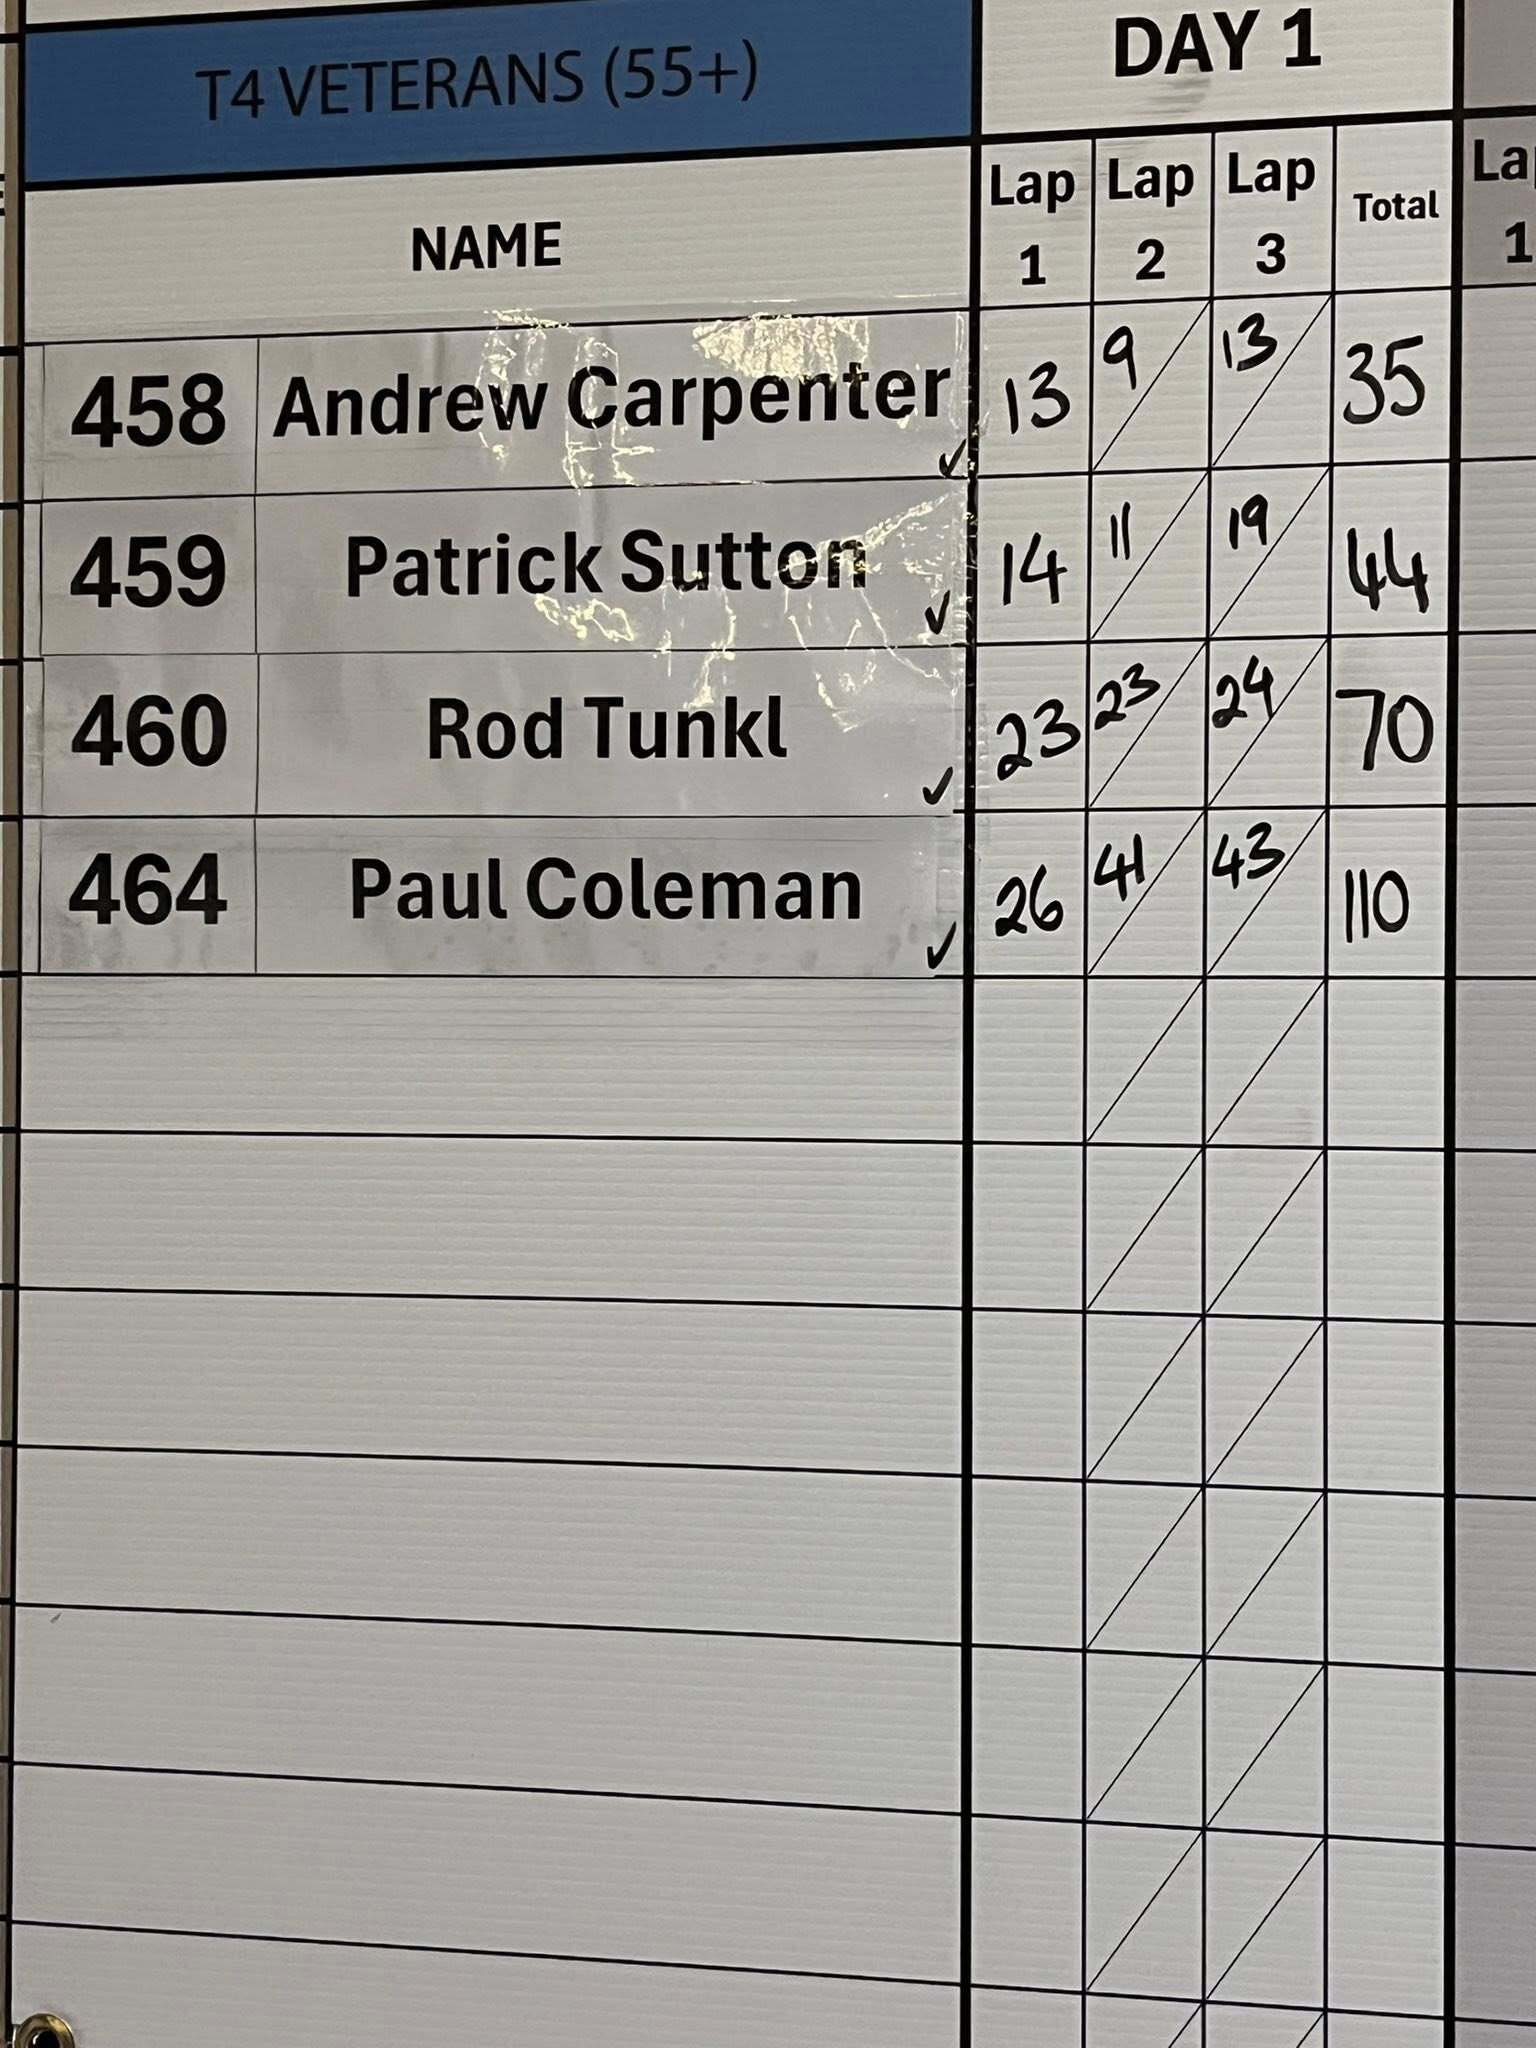 T4 VETERANS (55+) DAY 1
NAME Lap 1 Lap 2 Lap 3 Total Lap 1
458 Andrew Carpenter ✓ 13 9 13 35
459 Patrick Sutton ✓ 14 11 19 44
460 Rod Tunkl ✓ 23 23 24 70
464 Paul Coleman ✓ 26 41 43 110